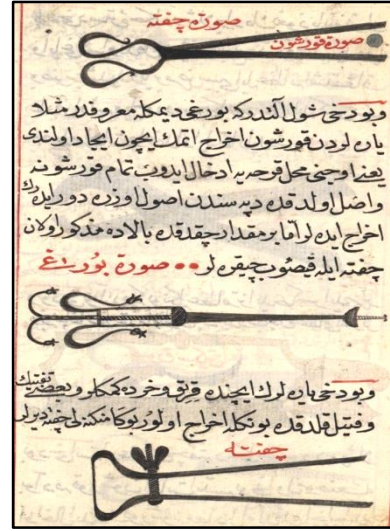 صورة چفته
صورة قورشون
وبودخى شول آلتدر كه بورغى ديمكله معروفدر مثلا
ياره لردن قورشون اخراج اتمك ايچون ايجاد اولندى
يعنى اوجنى محل قرحه يه ادخال ايدوب تمام قورشونه
واصل اولدقده دپه سندن اصول اوزره دور ايدرك
اخراج ايده لر اما بر مقدار چقدقده بالاده مذكور اولان
چفته ايله قيصوب چيقره لر صورة بورغى
وبودخى ياره لرك ايچنده قريق وخرده كمكلر وبعضى تفتيك
وفتيل قلدقده بونكله اخراج اولور بوكا منكنه لى چفته ديرلر
چفته